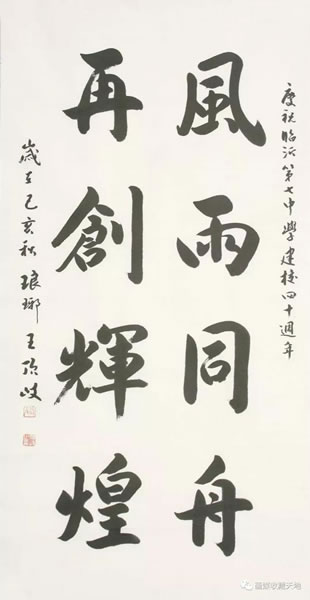 慶祝臨沂第七中學建校四十週年
風雨同舟
再創輝煌
歲在己亥秋琅琊王岐
收藏天地